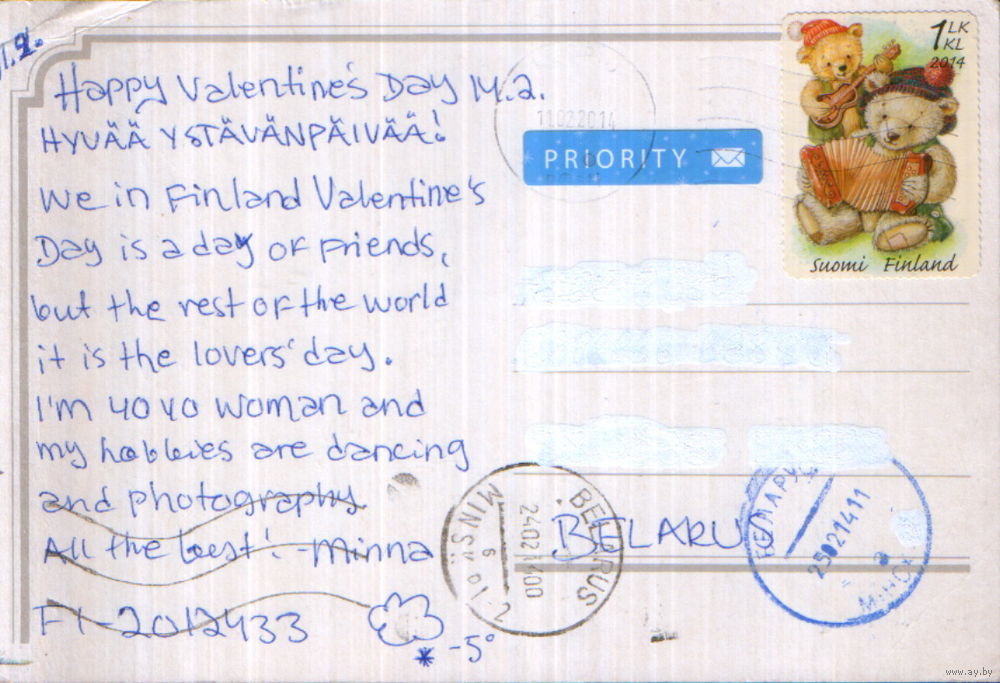 Happy Valentine's Day M.a.
HYVÄÄ YSTÄVÄNPÄIVÄÄ!
We in Finland Valentine's
Day is a day of friends,
but the rest of the world
it is the lovers' day.
I'm 40 yo woman and
my hobbies are dancing
and photography.
All the best! -Minna
FI-2012433
-5°
1 LK
KL
2014
Suomi Finland
11022014
PRIORITY
BELARUS
MINSK
BELARUS
24021400
БЕЛАРУСЬ
25021411
www.ay.by